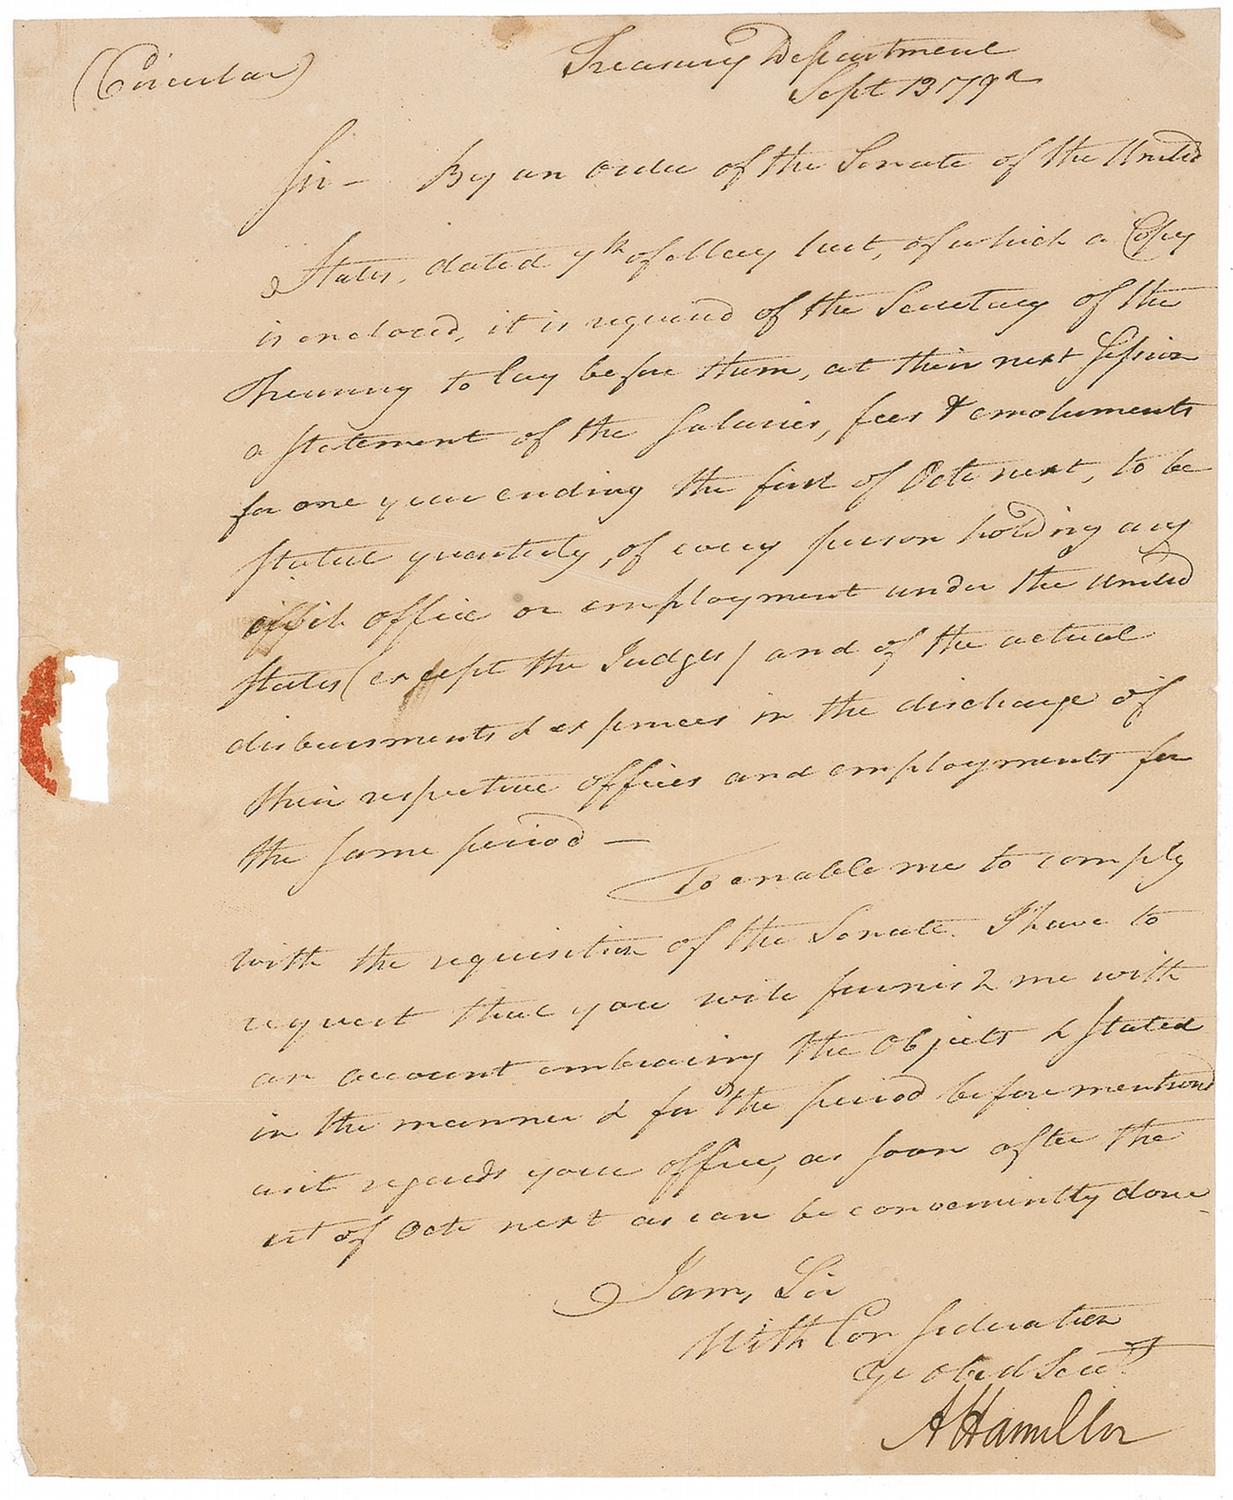 (Circular)
Treasury Department
Sept 13 179
Sir — By an order of the Senate of the United
States, dated 7th of May last, of which a Copy
is enclosed, it is required of the Secretary of the
Treasury to lay before them, at their next Session
a statement of the Salaries, fees & emoluments
for one year ending the first of Octr next, to be
stated quarterly, of every person holding any
office or employment under the United
States (except the Judges) and of the actual
disbursments & expences in the discharge of
their respective offices and employments for
the same period —
To enable me to comply
with the requisition of the Senate. I have to
request that you will furnish me with
an account embracing the Objects & Stated
in the manner & for the period beforementiond
as it regards your office, as soon after the
1st of Octr next as can be conveniently done
I am, Sir
With Consideration
yr Obed Servt
A Hamilton